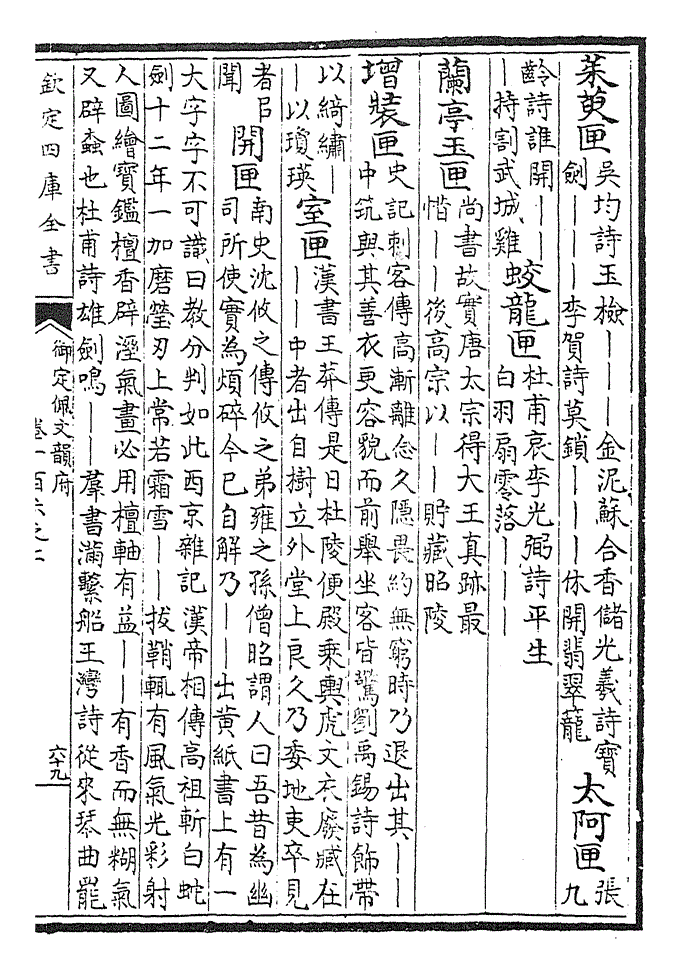 茱萸匣
吳均詩玉檢｜｜｜金泥蘇合香儲光羲詩寶
劍｜｜｜李賀詩莫鎖｜｜｜休開翡翠籠
太阿匣
張
九
齡詩誰開｜｜
｜持割武城雞
蛟龍匣
杜甫哀李光弼詩平生
白羽扇零落｜｜｜
蘭亭玉匣
尚書故實唐太宗得大王真跡最
惜｜｜後高宗以｜｜貯藏昭陵
增裝匣
史記刺客傳高漸離念久隱畏約無窮時乃退出其｜｜
中筑與其善衣更容貌而前舉坐客皆驚劉禹錫詩飾帶
以綺繡｜
｜以瓊瑛
室匣
漢書王莽傳是日杜陵便殿乘輿虎文衣廢臧在
｜｜中者出自樹立外堂上良久乃委地吏卒見
者㠯
聞
開匣
南史沈攸之傳攸之弟雍之孫僧昭謂人曰吾昔為幽
司所使實為煩碎今已自解乃｜｜出黃紙書上有一
大字字不可識曰教分判如此西京雜記漢帝相傳高祖斬白蛇
劍十二年一加磨瑩刃上常若霜雪｜｜拔鞘輒有風氣光彩射
人圖繪寶鑑檀香辟溼氣畫必用檀軸有益｜｜有香而無糊氣
又辟蠹也杜甫詩雄劍鳴｜｜羣書滿繫船王灣詩從來琴曲罷
欽定四庫全書
御定佩文韻府
卷一百六之
六十九